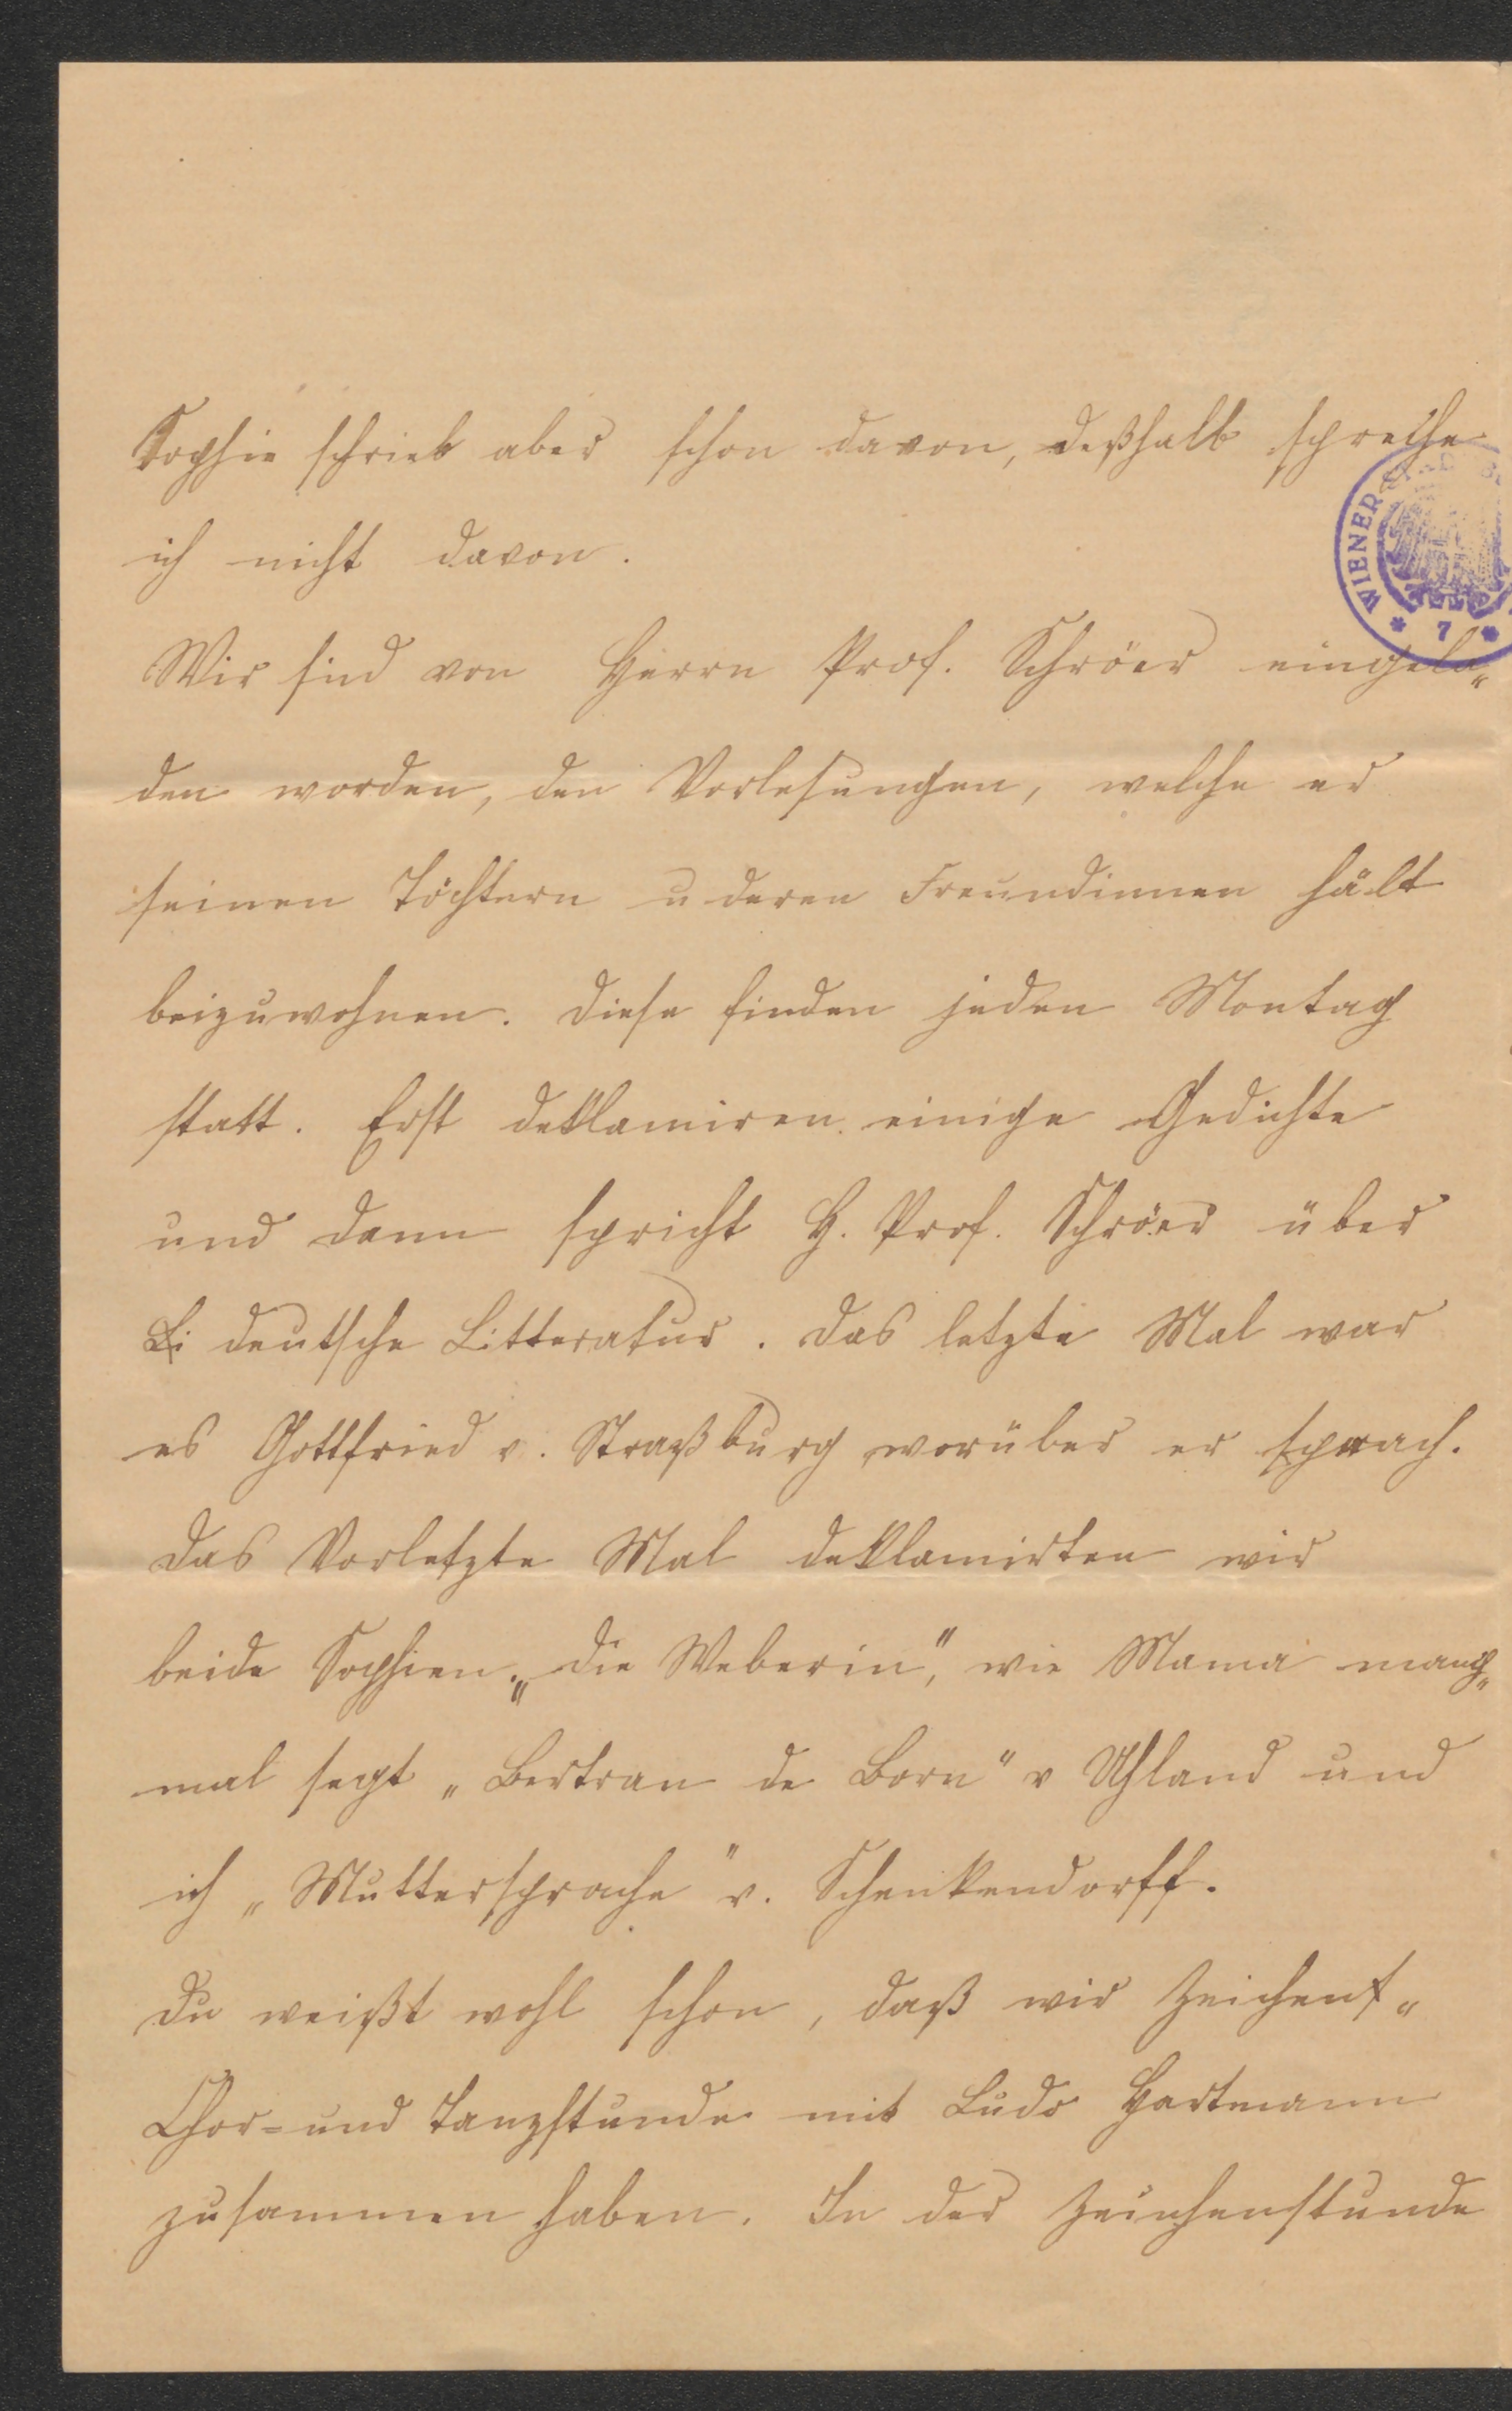 Sophie schrieb aber schon davon, deßhalb spreche
ich nicht davon.
WIENER
* 7 *
Wir sind von Herrn Prof. Schröer eingela„
den worden, den Vorlesungen, welche er
seinen Töchtern u deren Freundinnen hält
beizuwohnen. Diese finden jeden Montag
statt. Erst deklamiren einige Gedichte
und dann spricht H. Prof. Schröer über
Li deutsche Litteratur. Das letzte Mal war
es Gottfried v. Straßburg worüber er sprach.
Das Vorletzte Mal deklamirten wir
beide Sophien „die Weberin“, wie Mama manch„
mal sagt „Bertran de Born“ v Uhland und
ich „Muttersprache“ v. Schenkendorff.
Du weißt wohl schon, daß wir Zeichen„
Chor- und Tanzstunde mit Ludo Hartmann
zusammen haben. In der Zeichenstunde